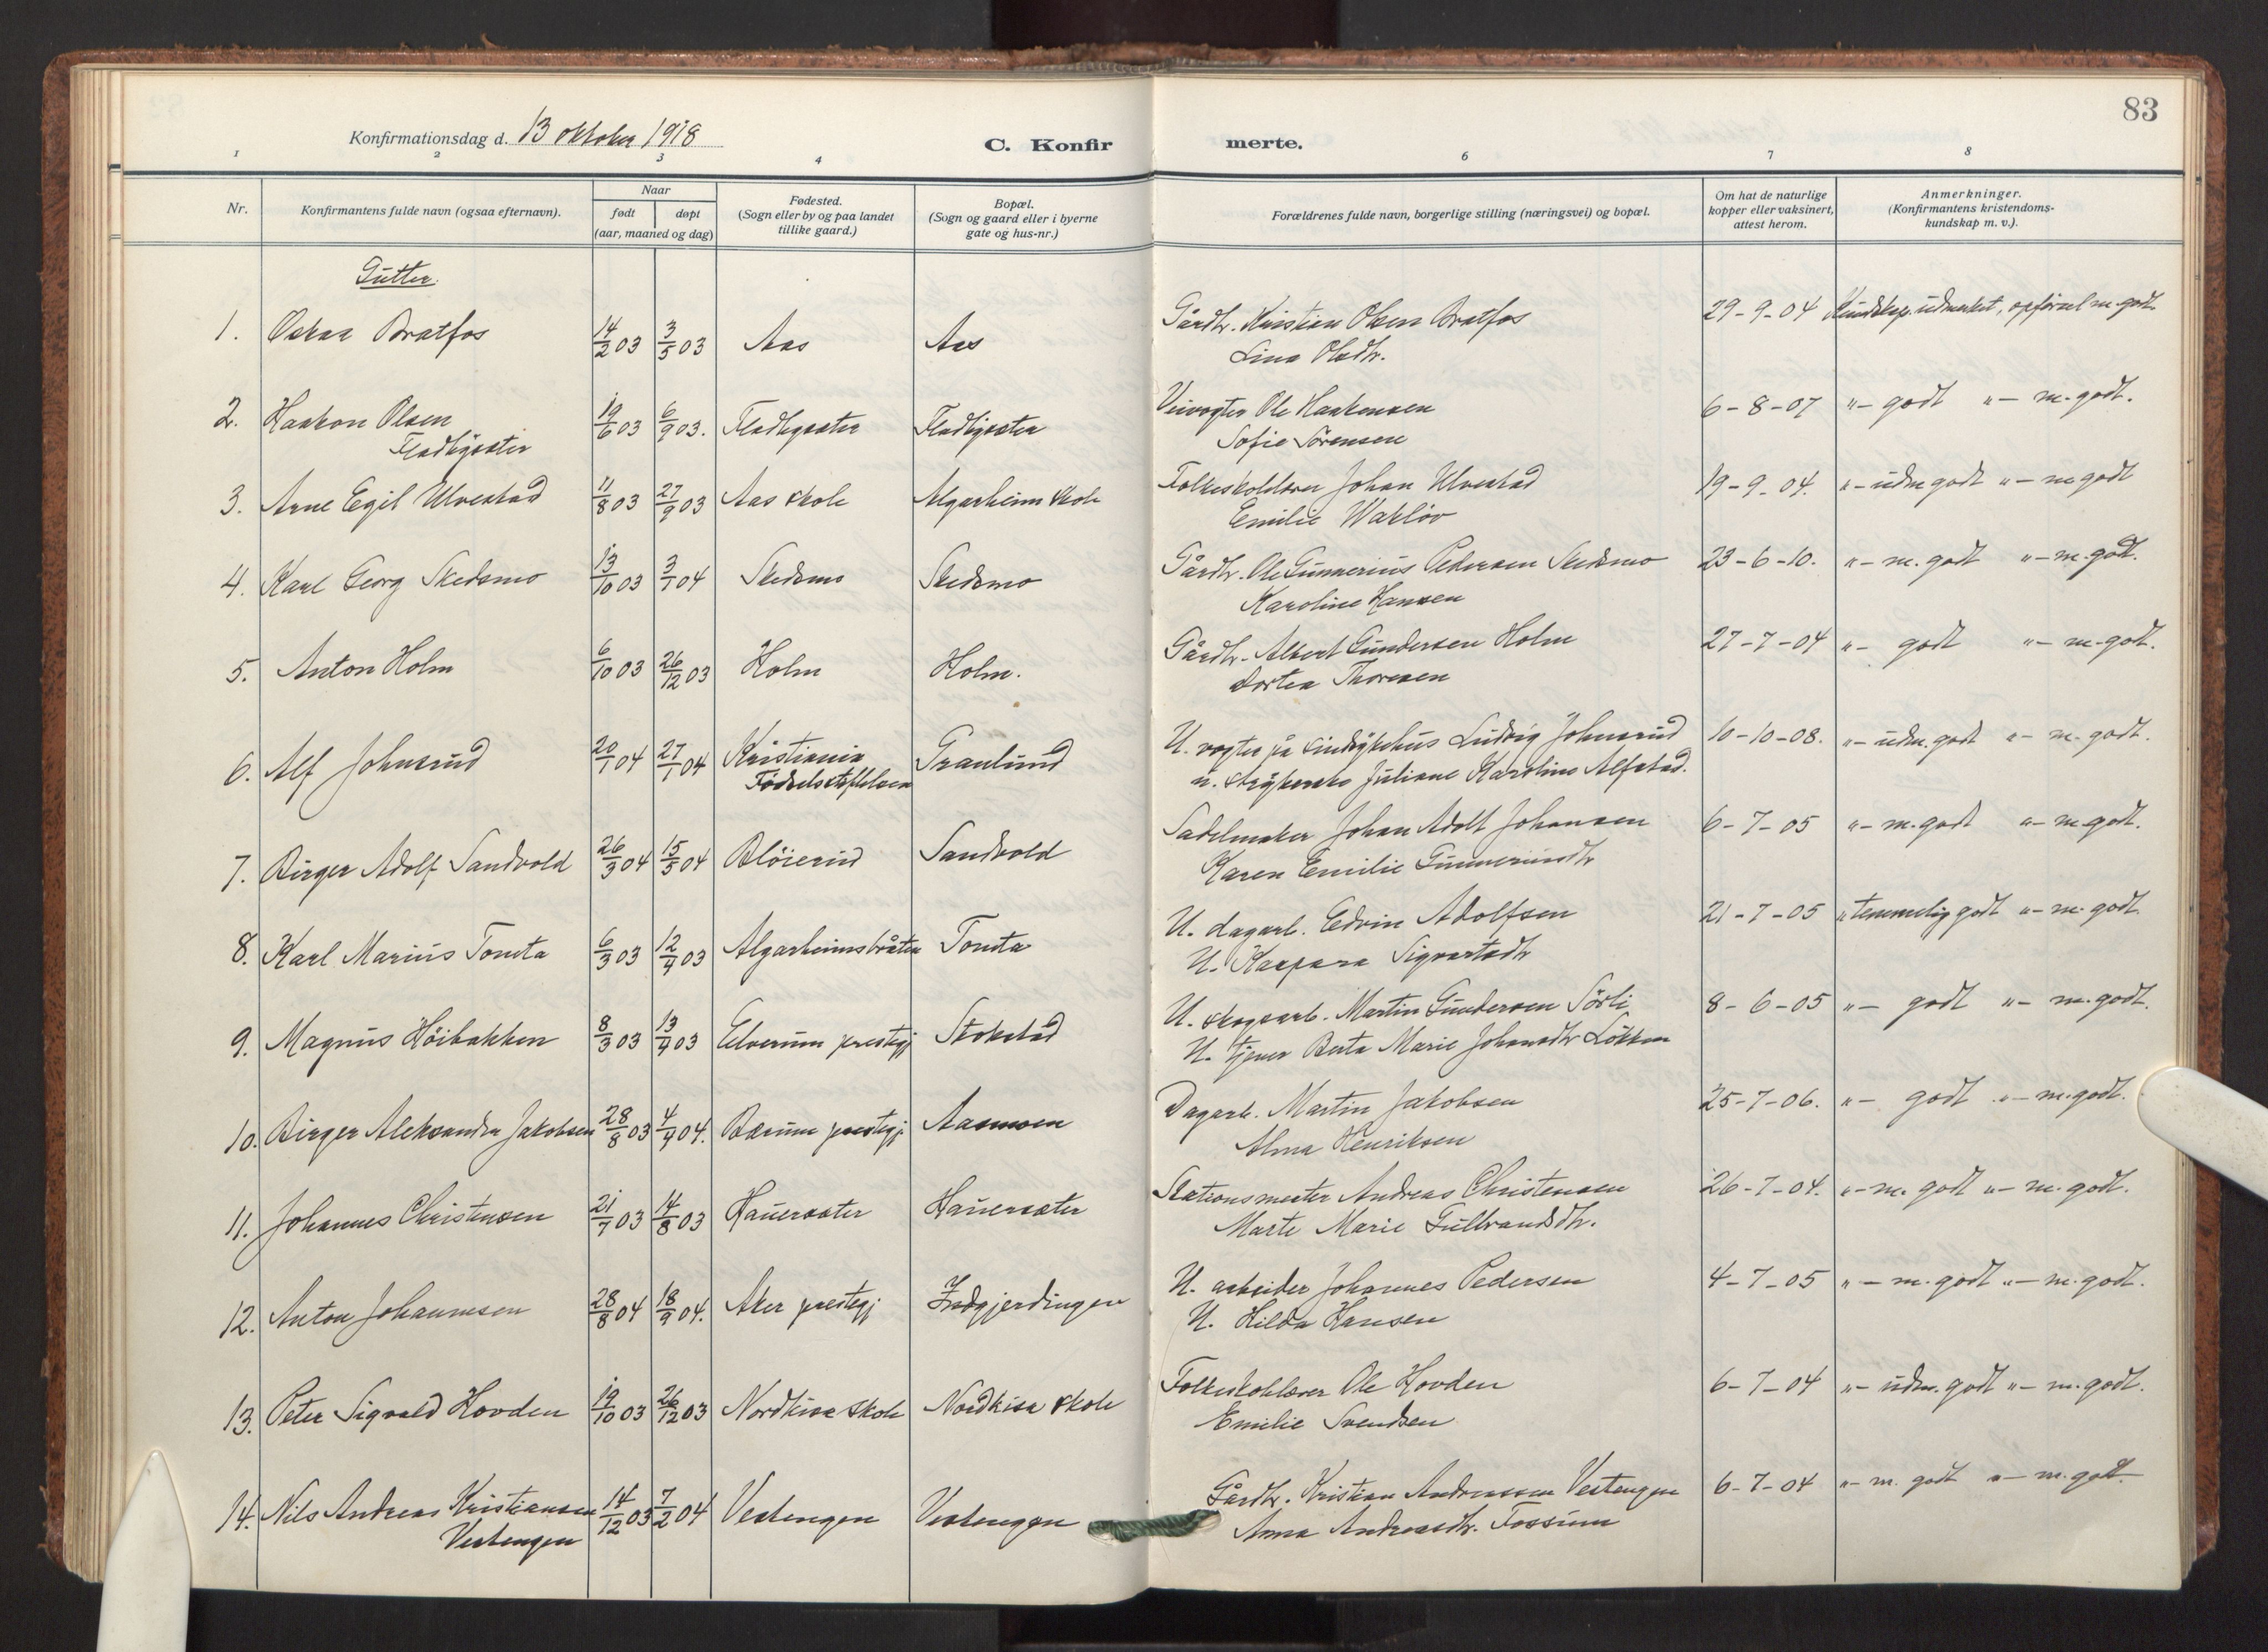 83
Konfirmationsdag d. 13 oktober 1918
C. Konfirmerte.
1 2 3 4 6 7 8
Nr.
Konfirmantens fulde navn (ogsaa efternavn).
Naar
født døpt
(aar, maaned og dag)
Fødested.
(Sogn eller by og paa landet
tillike gaard.)
Bopæl.
(Sogn og gaard eller i byerne
gate og hus-nr.)
Forældrenes fulde navn, borgerlige stilling (næringsvei) og bopæl.
Om hat de naturlige
kopper eller vaksinert,
attest herom.
Anmerkninger.
(Konfirmantens kristendoms-
kundskap m. v.).
Gutter.
1. Oskar Bratfos 14/2 03 3/5 03 Aas Aas Gårdbr. Kristian Olsen Bratfos 29-9-04 Kundskap udmerket, opførsel m. godt.
Lina Olsdtr.
2. Haakon Olsen 19/6 03 6/9 03. Fladbysæter Fladbysæter Veivogter Ole Haakensen 6-8-07 "- godt "- m. godt.
Fladbysæter Sofie Sørensen
3. Arne Egil Ulvestad 11/8 03 27/9 03 Aas skole Algarheim skole Folkeskolelærer Johan Ulvestad 19-9-04. "- udm godt "- m godt
Emilie Wakløv
4. Karl Georg Skedsmo 13/10 03 3/1 04 Skedsmo Skedsmo Gårdbr. Ole Gunnerius Pedersen Skedsmo 23-6-10. "- m. godt "- m. godt.
Karoline Hansen
5. Anton Holm 6/10 03 26/12 03 Holm Holm. Gårdbr. Albert Gundersen Holm 27-7-04 "- godt "- m. godt.
Dortea Thoresen
6. Alf Johnsrud 20/1 04 27/1 04 Kristiania Granlund U. vogter på sindsykehus Ludvig Johnsrud 10-10-08. "- udm. godt "- m. godt.
Fødselsstiftelsen u. strykerske Juliane Karoline Alfstad.
7. Birger Adolf Sandvold 26/3 04 15/5 04 Bløierud Sandvold Sadelmaker Johan Adolf Johansen 6-7-05 "- m. godt "- m. godt.
Karen Emilie Gunneriusdtr
8. Karl Marius Tomta 6/3 03 12/4 03 Algarheimsbråten Tomta U. dagarb. Edvin Adolfsen 21-7-05 " temmelig godt "- m. godt.
U. Kaspara Sigvartsdtr
9. Magnus Høibakken 8/3 03 13/4 03 Elverum prestegj Stokstad U. skogsarb. Martin Gundersen Sørli 8-6-05 "- godt "- m. godt.
U. tjener Berte Marie Johansdtr Løkken
10. Birger Aleksander Jakobsen 28/8 03 4/4 04. Bærum prestegj. Aasmoen Dagarb. Martin Jakobsen 25-7-06. "- godt "- m. godt.
Alma Henriksen
11. Johannes Christensen 21/7 03 14/8 03 Hauersæter Hauersæter Stationsmester Andreas Christensen 26-7-04. "- m. godt "- m. godt.
Marte Marie Gulbrandsdtr.
12. Anton Johannesen 28/8 04 18/9 04. Aker prestegj Indgjerdingen U. arbeider Johannes Pedersen 4-7-05 "- m. godt "- m. godt.
U. Hilda Hansen
13. Peter Sigvald Hovden 19/10 03 26/12 03 Nordkisa skole Nordkisa skole Folkeskolelærer Ole Hovden 6-7-04 "- udm. godt "- m. godt.
Emilie Svendsen
14. Nils Andreas Kristiansen 14/12 03 7/2 04 Vestengen Vestengen Gårdbr. Kristian Andreassen Vestengen 6-7-04 "- m. godt "- m. godt.
Vestengen Anna Andreasdtr. Fossum